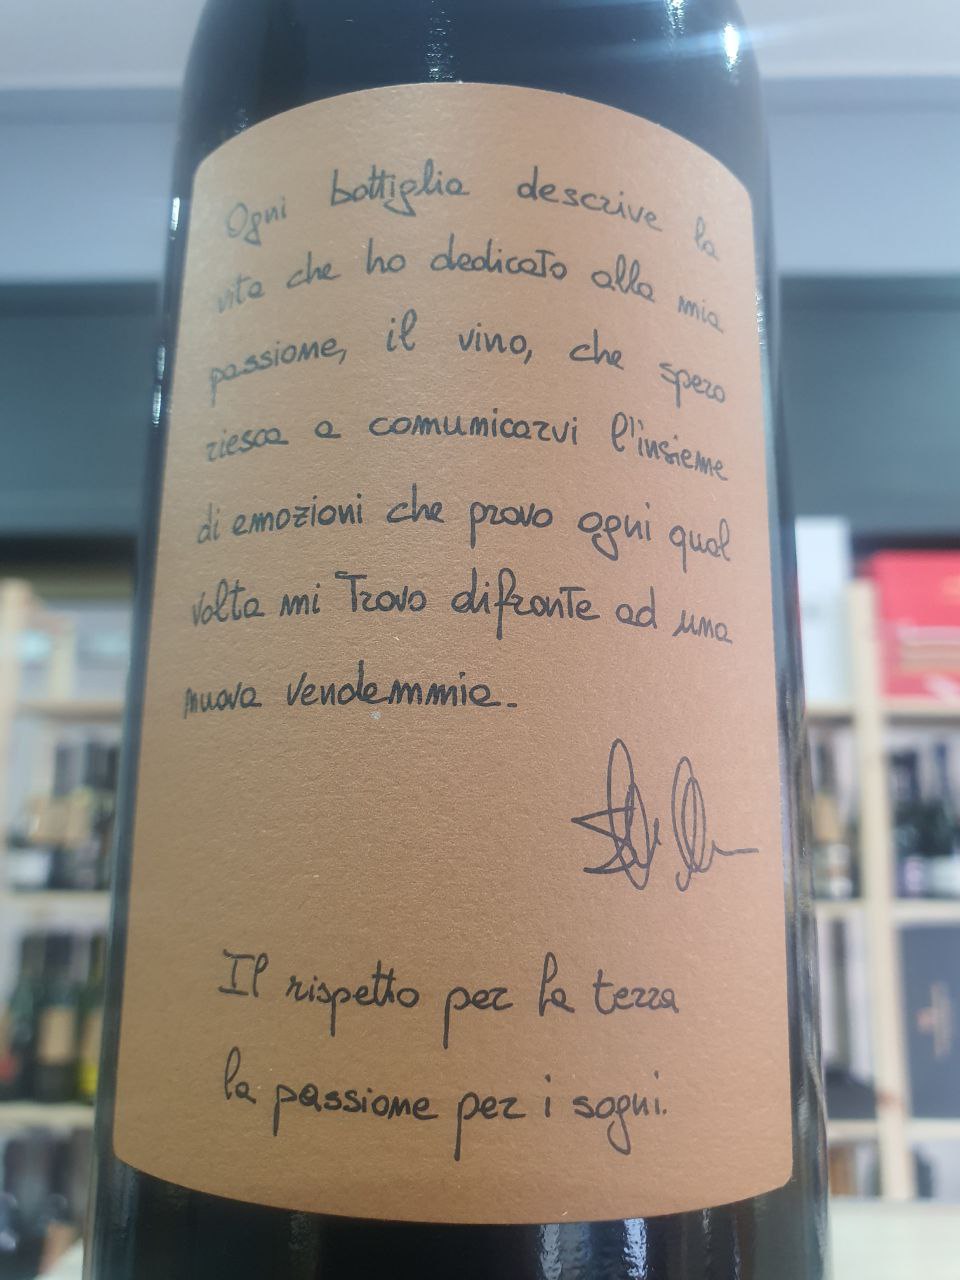 Ogni bottiglia descrive la
vita che ho dedicato alla mia
passione, il vino, che spero
riesca a comunicarvi l'insieme
di emozioni che provo ogni qual
volta mi trovo difronte ad una
nuova vendemmia.
Il rispetto per la terra
la passione per i sogni.